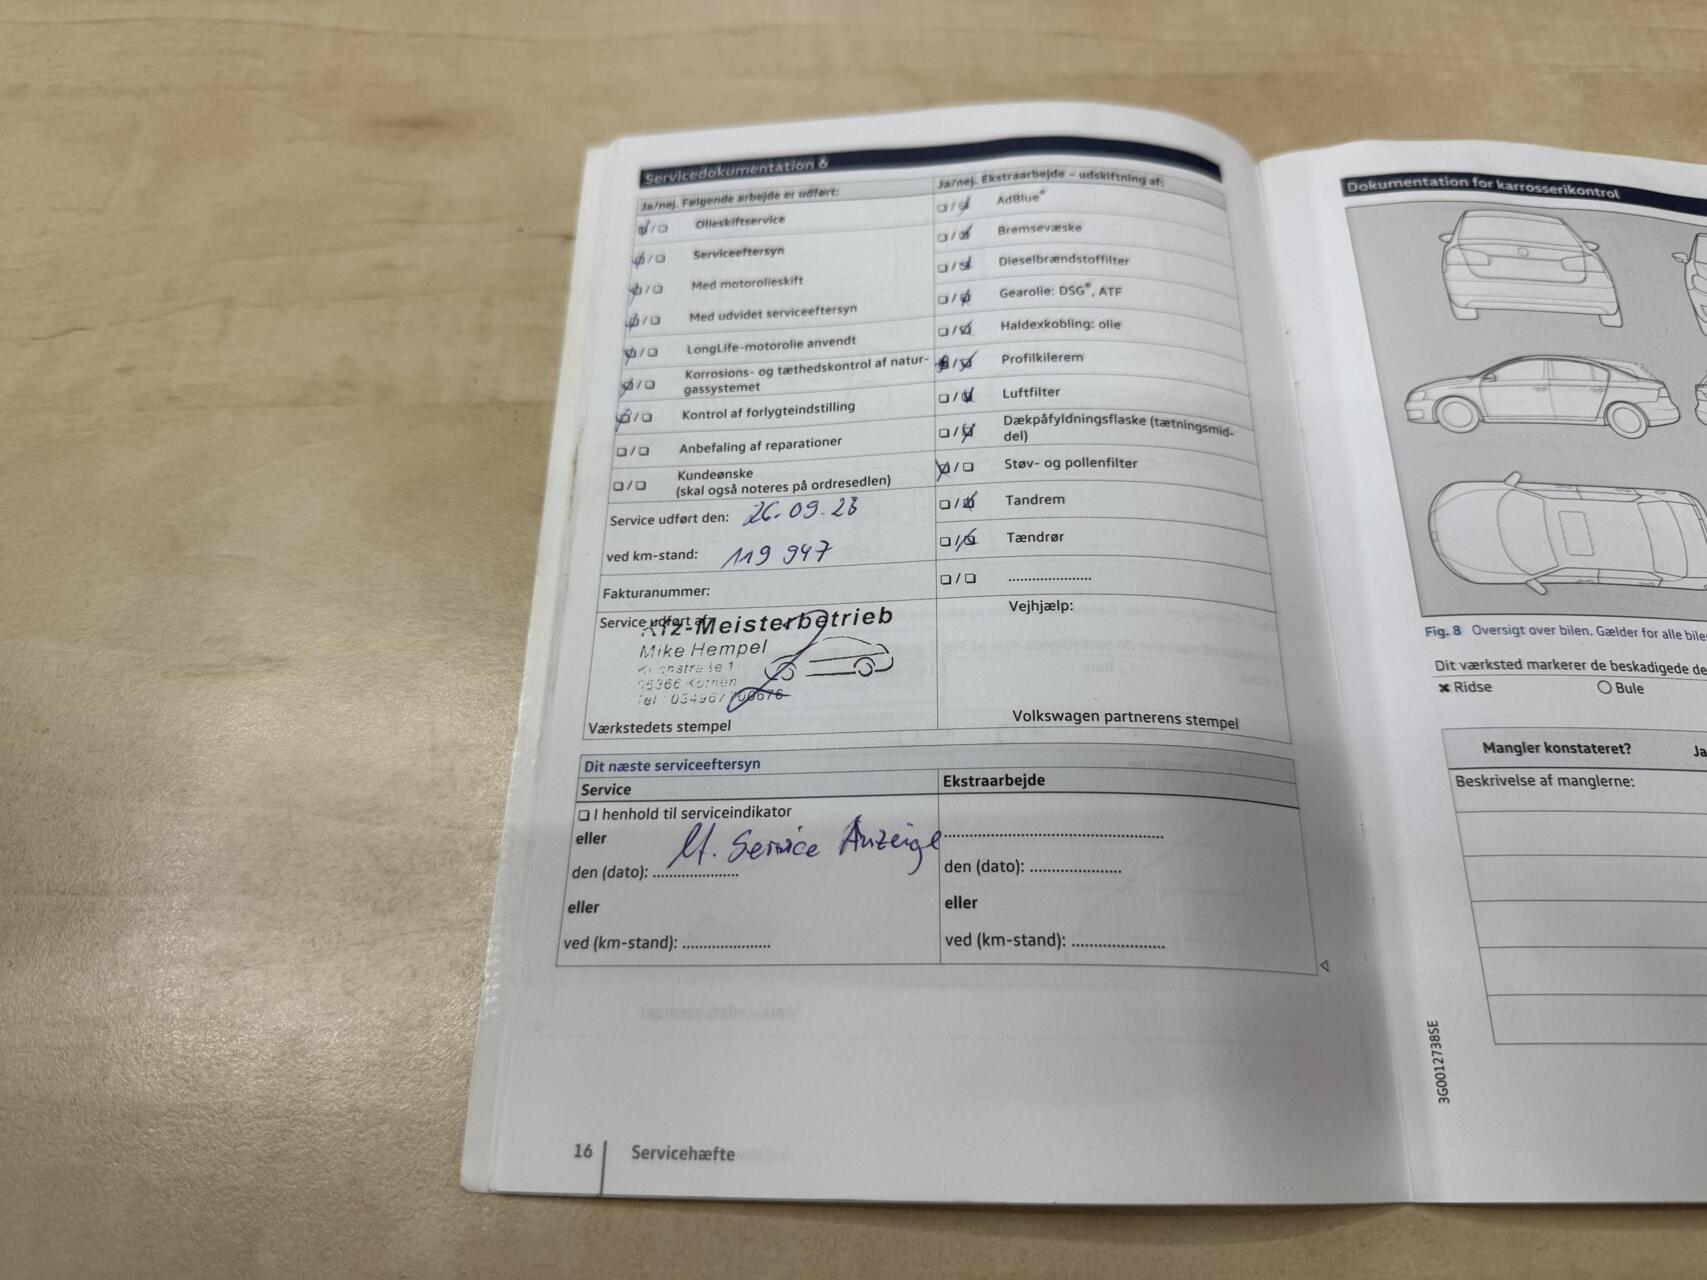 Servicedokumentation 6
Ja/nej. Følgende arbejde er udført:
Olieskiftservice
Serviceeftersyn
Med motorolieskift
Med udvidet serviceeftersyn
LongLife-motorolie anvendt
Korrosions- og tæthedskontrol af natur-
gassystemet
Kontrol af forlygteindstilling
Anbefaling af reparationer
Kundeønske
(skal også noteres på ordresedlen)
Service udført den: 26.09.23
ved km-stand: 119 947
Fakturanummer:
Service udført af:
Kfz-Meisterbetrieb
Mike Hempel
Værkstedets stempel
Ja/nej. Ekstraarbejde – udskiftning af:
AdBlue®
Bremsevæske
Dieselbrændstoffilter
Gearolie: DSG®, ATF
Haldexkobling: olie
Profilkilerem
Luftfilter
Dækpåfyldningsflaske (tætningsmid-
del)
Støv- og pollenfilter
Tandrem
Tændrør
....................
Vejhjælp:
Volkswagen partnerens stempel
Dit næste serviceeftersyn
Service
I henhold til serviceindikator
eller
lt. Service Anzeige
den (dato): ....................
eller
ved (km-stand): ....................
Ekstraarbejde
den (dato): ....................
eller
ved (km-stand): ....................
16 Servicehæfte
Dokumentation for karrosserikontrol
Fig. 8 Oversigt over bilen. Gælder for alle
Dit værksted markerer de beskadigede
Ridse
Bule
Mangler konstateret?
Ja
Beskrivelse af manglerne:
3G0012738SE